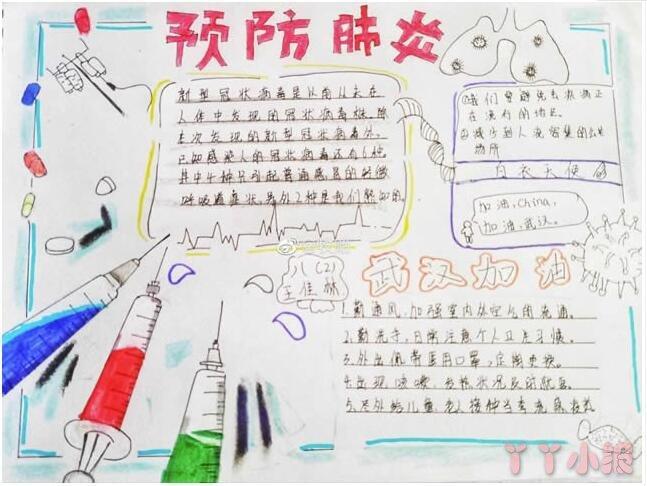 预防肺炎
新型冠状病毒是以前从未在
人体中发现的冠状病毒株,除
本次发现的新型冠状病毒外,
已知感染人的冠状病毒还有6种,
其中4种只引起普通感冒的轻微
呼吸道症状,另外2种是我们熟知的
①我们要避免去疾病正
在流行的地区。
②减少到人流密集的公共
场所
白衣天使
加油,China,
加油,武汉。
八(2)
王佳林
武汉加油
1.勤通风,加强室内外空气的流通。
2.勤洗手,日常注意个人卫生习惯。
3.外出佩带医用口罩,定期更换。
4.出现咳嗽,发热状况及时就医。
5.
丫丫小报